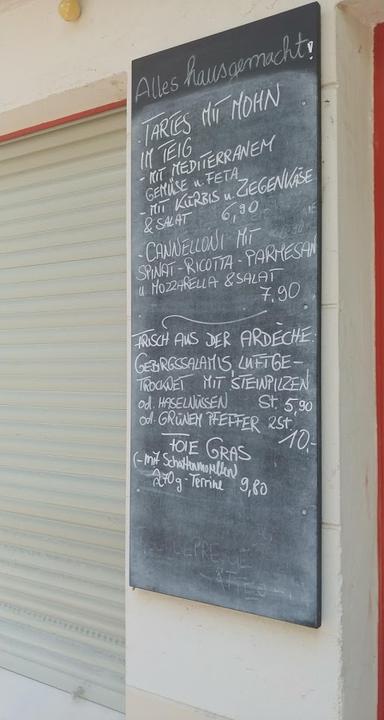 Alles hausgemacht!
- TARTES MIT MOHN
IM TEIG
- MIT MEDITERRANEM
GEMÜSE u. FETA
- MIT KÜRBIS u. ZIEGENKÄSE
& SALAT 6,90
- CANNELLONI MIT
SPINAT-RICOTTA-PARMESAN
u MOZZARELLA & SALAT
7,90
FRISCH AUS DER ARDÈCHE:
GEBIRGSSALAMIS, LUFTGE-
TROCKNET MIT STEINPILZEN
od. HASELNÜSSEN St. 5,90
od. GRÜNEM PFEFFER 2St.
10,-
FOIE GRAS
(- mit Schattenmorellen)
270g-Terrine 9,80